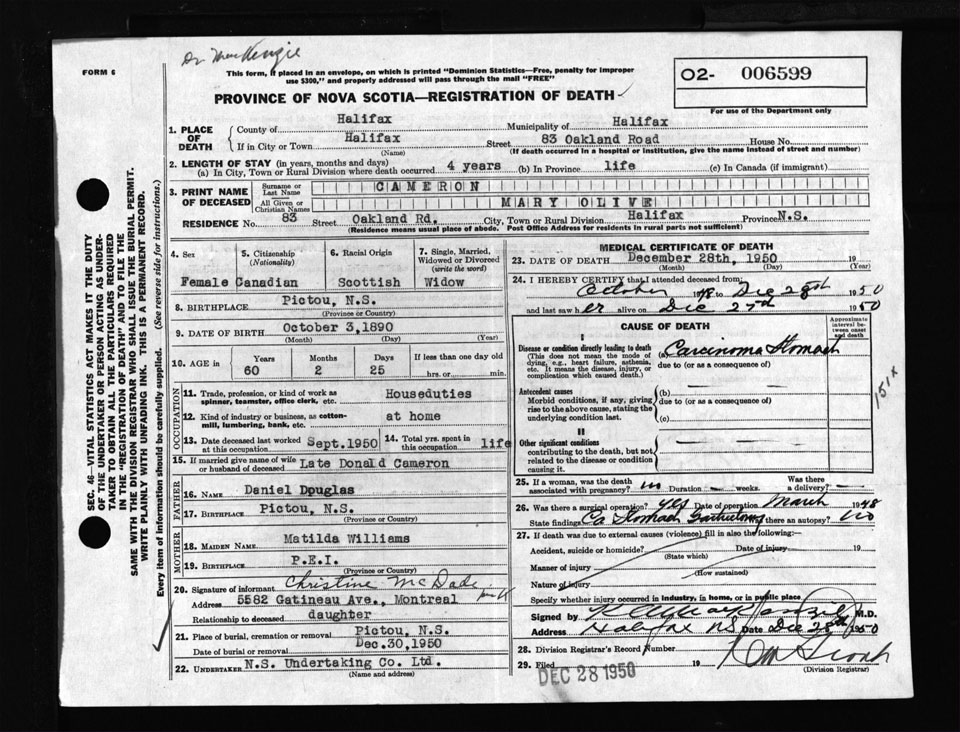 Dr MacKenzie
FORM 6
This form, if placed in an envelope, on which is printed "Dominion Statistics—Free, penalty for improper
use $300," and properly addressed will pass through the mail "FREE"
O2- 006599
For use of the Department only
PROVINCE OF NOVA SCOTIA—REGISTRATION OF DEATH
1. PLACE OF DEATH
County of Halifax Municipality of Halifax
If in City or Town Halifax Street 83 Oakland Road House No.
(Name) (If death occurred in a hospital or institution, give the name instead of street and number)
2. LENGTH OF STAY (in years, months and days)
(a) In City, Town or Rural Division where death occurred 4 years (b) In Province life (c) In Canada (if immigrant)
3. PRINT NAME OF DECEASED
Surname or Last Name CAMERON
All Given or Christian Names MARY OLIVE
RESIDENCE No. 83 Street Oakland Rd. City, Town or Rural Division Halifax Province N.S.
(Residence means usual place of abode. Post Office Address for residents in rural parts not sufficient)
4. Sex Female
5. Citizenship (Nationality) Canadian
6. Racial Origin Scottish
7. Single, Married, Widowed or Divorced (write the word) Widow
8. BIRTHPLACE Pictou, N.S.
(Province or Country)
9. DATE OF BIRTH October 3,1890
(Month) (Day) (Year)
10. AGE in Years Months Days If less than one day old
60 2 25 hrs. or min.
OCCUPATION
11. Trade, profession, or kind of work as spinner, teamster, office clerk, etc. Houseduties
12. Kind of industry or business, as cotton-mill, lumbering, bank, etc. at home
13. Date deceased last worked at this occupation Sept.1950
14. Total yrs. spent in this occupation life
15. If married give name of wife or husband of deceased Late Donald Cameron
FATHER
16. NAME Daniel Douglas
17. BIRTHPLACE Pictou, N.S.
(Province or Country)
MOTHER
18. MAIDEN NAME Matilda Williams
19. BIRTHPLACE P.E.I.
(Province or Country)
20. Signature of informant Christine McDade
Address 5582 Gatineau Ave., Montreal
Relationship to deceased daughter
21. Place of burial, cremation or removal Pictou, N.S.
Date of burial or removal Dec.30,1950
22. UNDERTAKER N.S. Undertaking Co. Ltd.
(Name and address)
MEDICAL CERTIFICATE OF DEATH
23. DATE OF DEATH December 28th, 1950 19
(Month) (Day) (Year)
24. I HEREBY CERTIFY that I attended deceased from:
October 1948 to Dec 28th 1950
and last saw her alive on Dec 27th 1950
CAUSE OF DEATH
Approximate interval between onset and death
I
Disease or condition directly leading to death
(This does not mean the mode of dying, e.g., heart failure, asthenia, etc. It means the disease, injury, or complication which caused death.)
(a) Carcinoma Stomach
due to (or as a consequence of)
151x
Antecedent causes
Morbid conditions, if any, giving rise to the above cause, stating the underlying condition last.
(b)
due to (or as a consequence of)
(c)
II
Other significant conditions
contributing to the death, but not related to the disease or condition causing it.
25. If a woman, was the death associated with pregnancy? no Duration — weeks. Was there a delivery? -
26. Was there a surgical operation? yes Date of operation March 1948
State findings Ca Stomach Gastrectomy Was there an autopsy? no
27. If death was due to external causes (violence) fill in also the following:—
Accident, suicide or homicide? Date of injury 19
(State which)
Manner of injury
(How sustained)
Nature of injury
Specify whether injury occurred in industry, in home, or in public place
Signed by MacKenzie M.D.
Address Halifax NS Date Dec 28th 1950
28. Division Registrar's Record Number
29. Filed DEC 28 1950 19
(Division Registrar)
SEC. 46—VITAL STATISTICS ACT MAKES IT THE DUTY
OF THE UNDERTAKER OR PERSON ACTING AS UNDER-
TAKER TO OBTAIN ALL THE PARTICULARS REQUIRED
IN THE "REGISTRATION OF DEATH" AND TO FILE THE
SAME WITH THE DIVISION REGISTRAR WHO SHALL ISSUE THE BURIAL PERMIT.
WRITE PLAINLY WITH UNFADING INK. THIS IS A PERMANENT RECORD.
Every item of information should be carefully supplied. (See reverse side for instructions.)